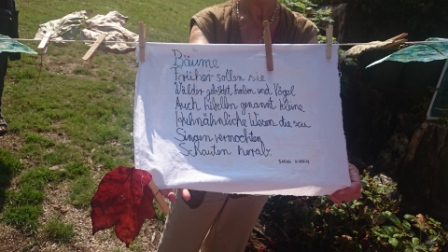 Bäume
Früher sollen sie
Wälder gebildet haben und Vögel
Auch Libellen genannt kleine
Huhnähnliche Wesen die zu
Singen vermochten
Schauten herab
Sarah Kirsch